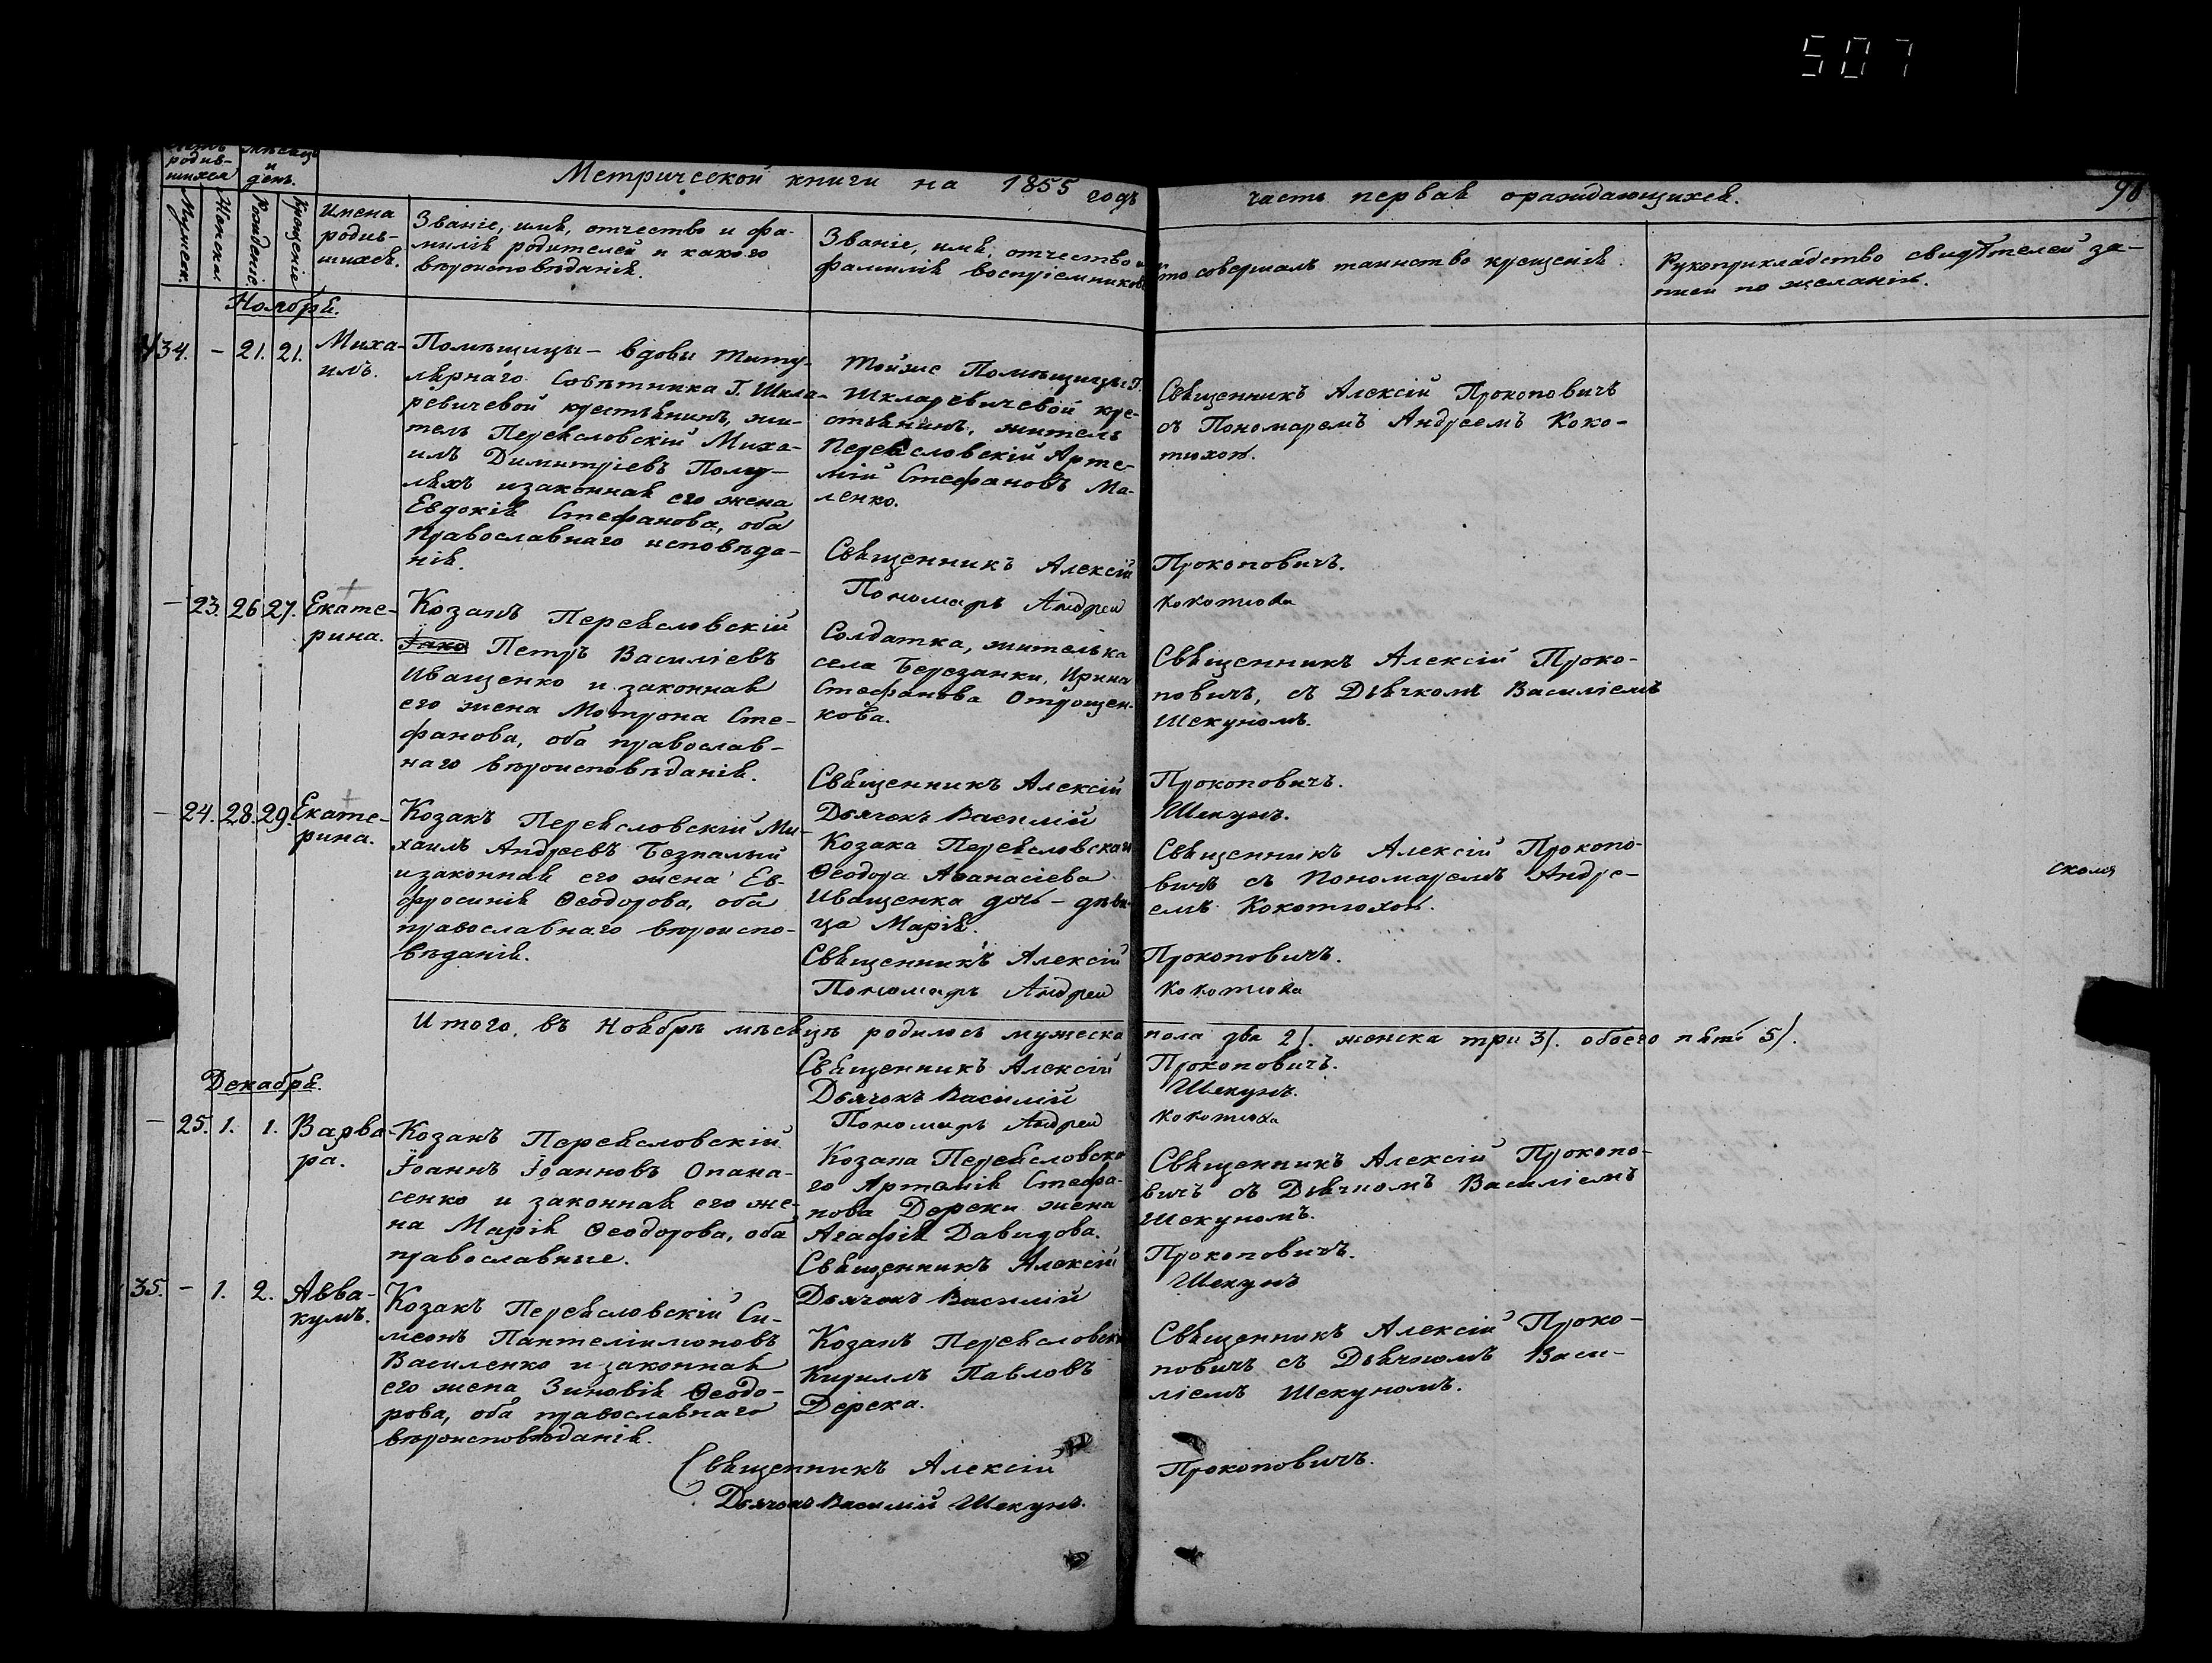 507
Метрической книги на 1855 годъ
часть первая ораждающихся.
90
родив-
шихся
и
день.
Мужеск.
Женска.
Рожденіе
Крещеніе
Имена
родив-
шихся.
Званіе, имя, отчество и фа-
милія родителей и какого
вѣроисповѣданія.
Званіе, имя, отчество и
фамилія воспріемниковъ
Кто совершалъ таинство крещенія.
Рукоприкладство свидѣтелей за-
писи по желанію.
Ноября.
34. – 21. 21.
Миха-
илъ.
Помѣщицы – вдовы титу-
лярнаго Совѣтника Г. Шкля-
ревичевой крестьянинъ, жи-
тель Переясловскій Миха-
илъ Димитріевъ Полу-
ляхъ изаконная его жена
Евдокія Стефанова, оба
православнаго исповѣда-
нія.
Тойже Помѣщицы Г.
Шкляревичевой кре-
стьянинъ, житель
Переясловскій Арте-
мій Стефановъ Ма-
ленко.
Священникъ Алексій Прокоповичъ
съ Пономаремъ Андреемъ Коко-
тюхою.
Священникъ Алексій Прокоповичъ.
Пономарь Андрей Кокотюха
– 23. 26 27.
Екате-
рина.
Козакъ Переясловскій
Петръ Василіевъ
Иващенко и законная
его жена Мотрона Сте-
фанова, оба православ-
наго вѣроисповѣданія.
Солдатка, жителька
села Березанки, Ирина
Стефанова Отрощен-
кова.
Священникъ Алексій Проко-
повичъ, съ Дьячкомъ Василіемъ
Шекуномъ.
Священникъ Алексій Прокоповичъ.
Дьячокъ Василій Шекунъ.
– 24. 28. 29.
Екате-
рина.
Козакъ Переясловскій Ми-
хаилъ Андреевъ Безпалый
изаконная его жена Ев-
фросинія Ѳеодорова, оба
православнаго вѣроиспо-
вѣданія.
Козака Переясловскаго
Ѳеодора Аѳанасіева
Иващенка дочь – дѣви-
ца Марія.
Священникъ Алексій Прокопо-
вичъ съ Пономаремъ Андре-
емъ Кокотюхою.
Священникъ Алексій Прокоповичъ.
Пономарь Андрей Кокотюха
Итого, въ Ноябрѣ мѣсяцѣ родилось мужеска пола два 2/. женска три 3/. обоего пять 5/.
Священникъ Алексій Прокоповичъ.
Дьячокъ Василій Шекунъ.
Пономарь Андрей Кокотюха
Декабря.
– 25. 1. 1.
Варва-
ра.
Козакъ Переясловскій
Іоаннъ Іоанновъ Опана-
сенко и законная его же-
на Марія Ѳеодорова, оба
православные.
Козака Переясловска-
го Артемія Стефа-
нова Дереки жена
Агафія Давидова.
Священникъ Алексій Прокопо-
вичъ съ Дьячкомъ Василіемъ
Шекуномъ.
Священникъ Алексій Прокоповичъ.
Дьячокъ Василій Шекунъ
35. – 1. 2.
Авва-
кумъ.
Козакъ Переясловскій Си-
меонъ Пантелімоновъ
Василенко и законная
его жена Зиновія Ѳеодо-
рова, оба православнаго
вѣроисповѣданія.
Козакъ Переясловскій
Кириллъ Павловъ
Дерека.
Священникъ Алексій Проко-
повичъ съ Дьячкомъ Васи-
ліемъ Шекуномъ.
Священникъ Алексій Прокоповичъ.
Дьячокъ Василій Шекунъ.